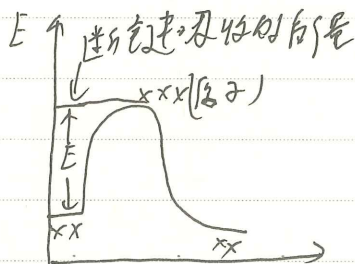 E 断键吸收的能量
×××(原子)
E
××
××